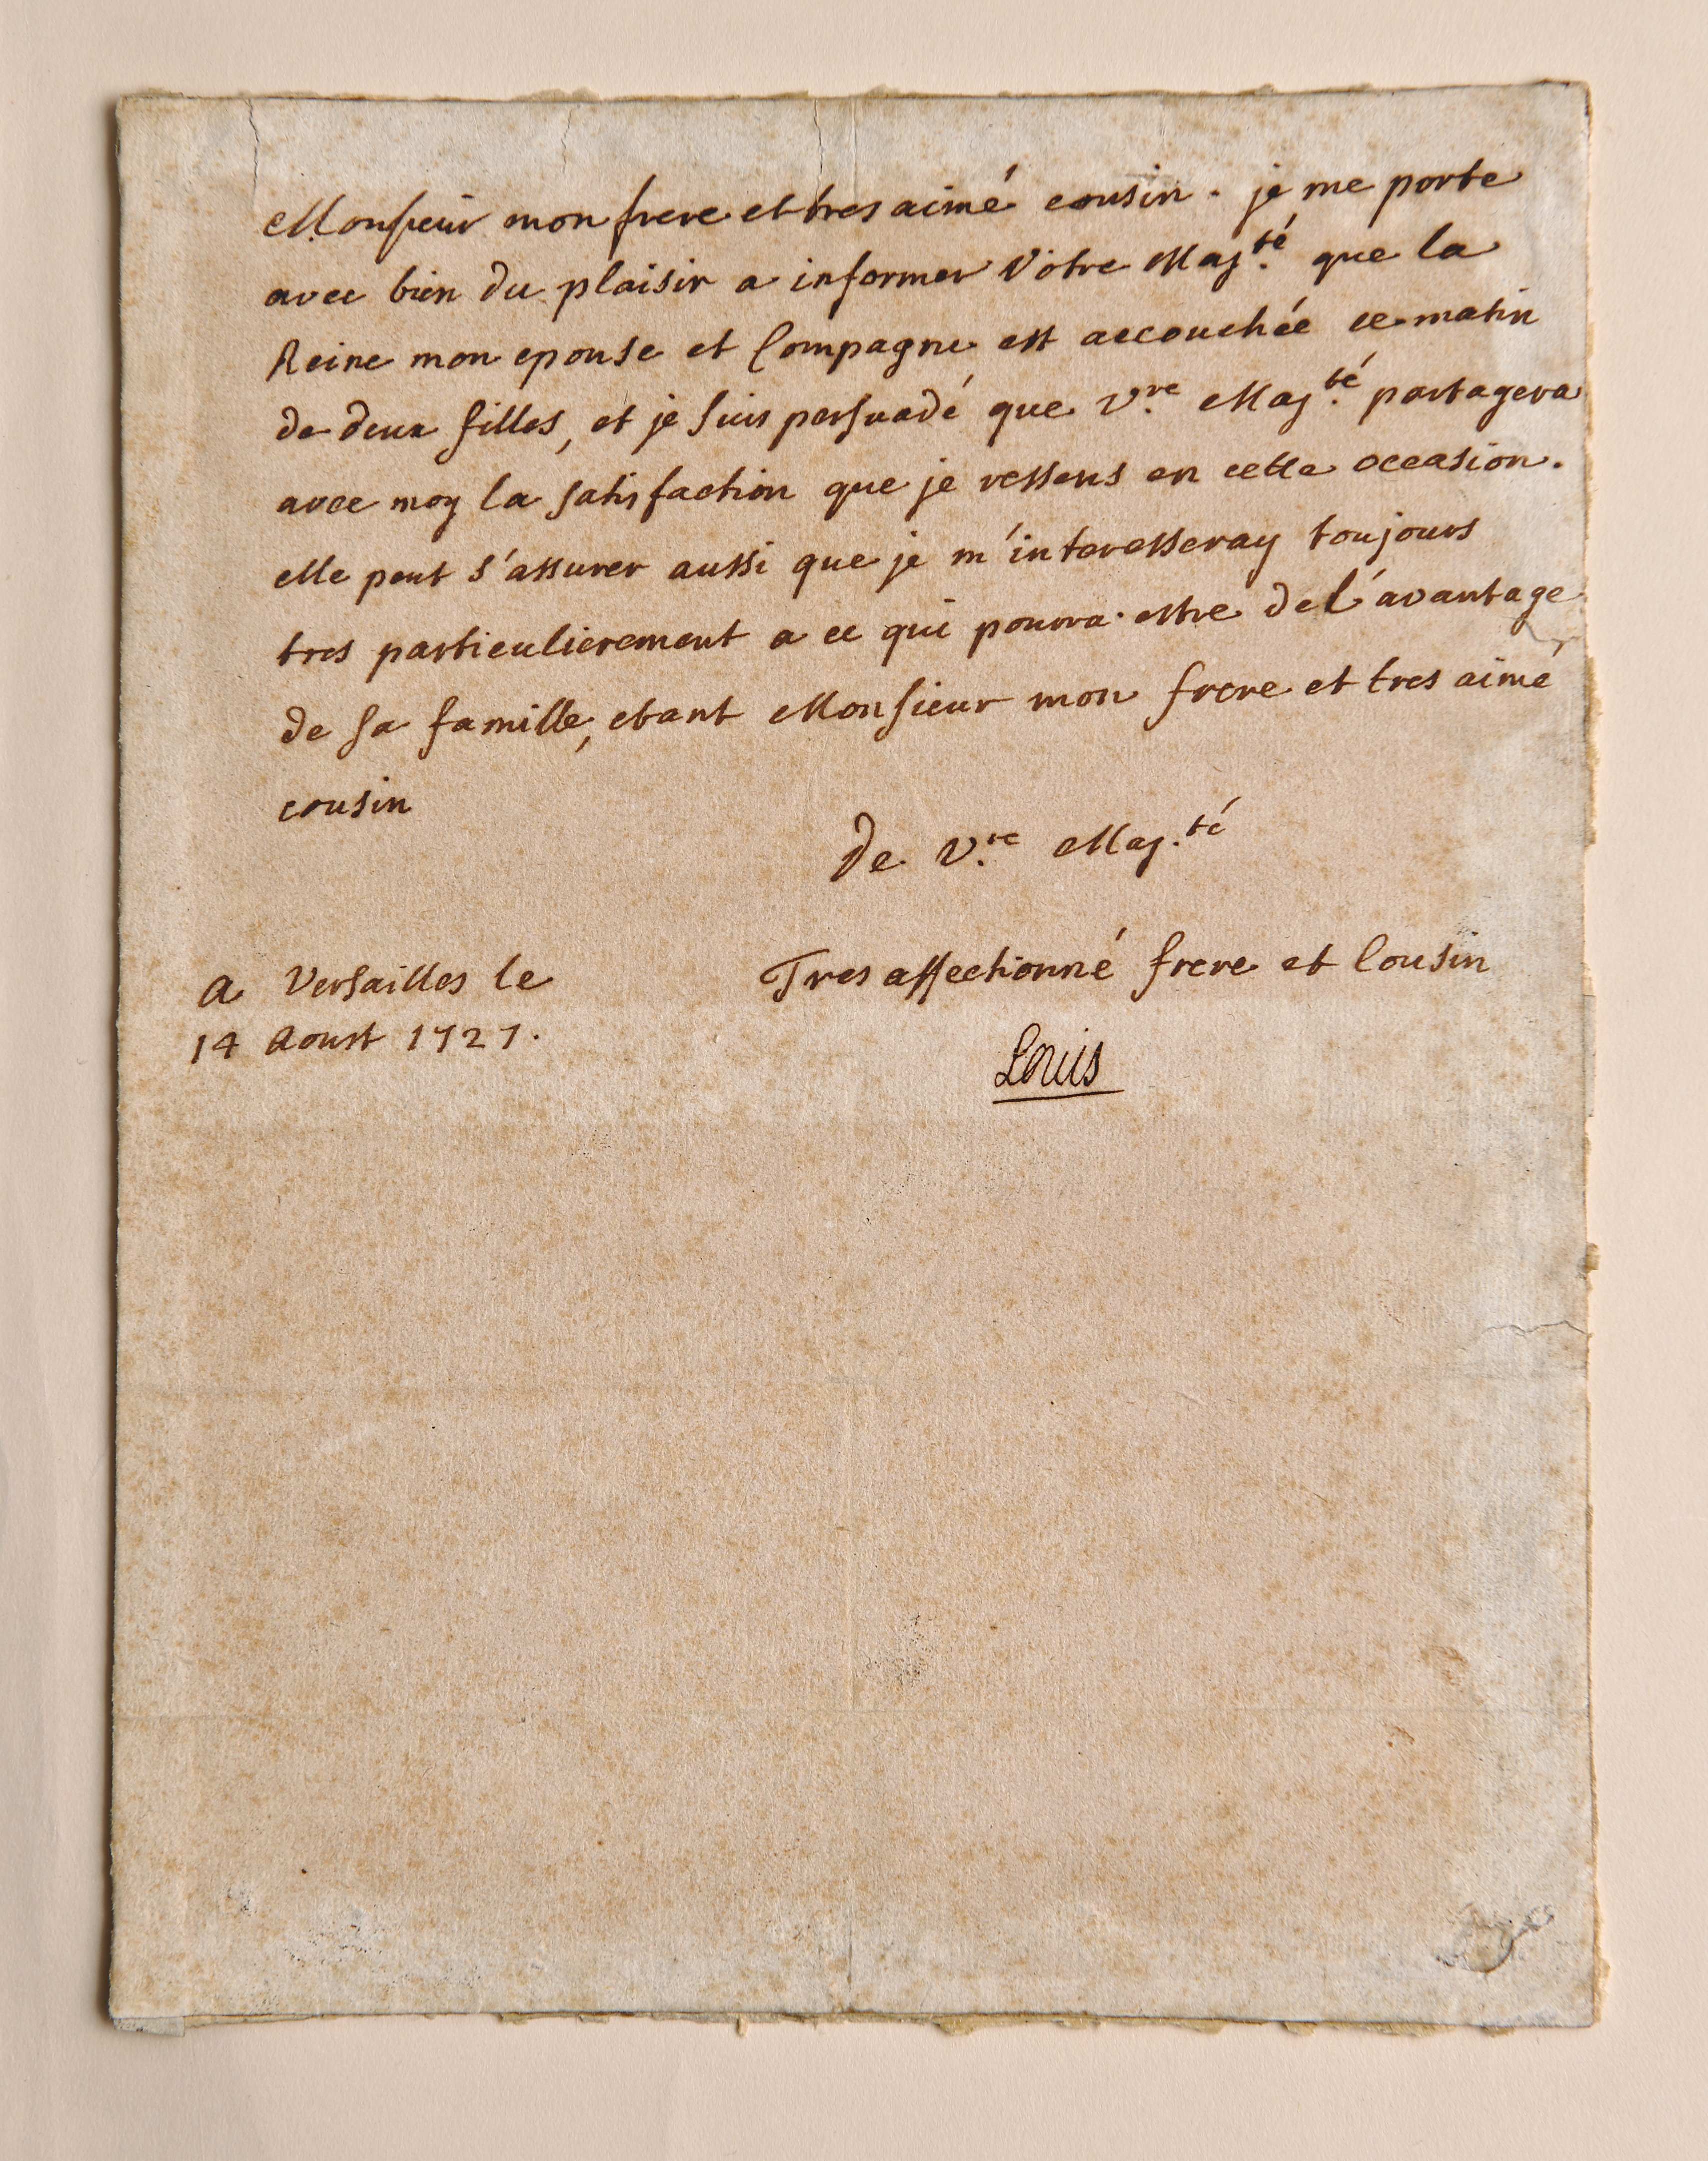 Monsieur mon frere et tres aimé cousin. je me porte
avec bien du plaisir a informer Votre Maj.té que la
Reine mon epouse et Compagne est accouchée ce matin
de deux filles, et je suis persuadé que V.re Maj.té partagera
avec moy la satisfaction que je ressens en cette occasion.
elle peut s'assurer aussi que je m'interesseray toujours
tres particulierement a ce qui pourra estre de l'avantage
de sa famille, etant Monsieur mon frere et tres aimé
cousin
De V.re Maj.té
Tres affectionné frere et Cousin
Louis
a Versailles le
14 Aoust 1727.